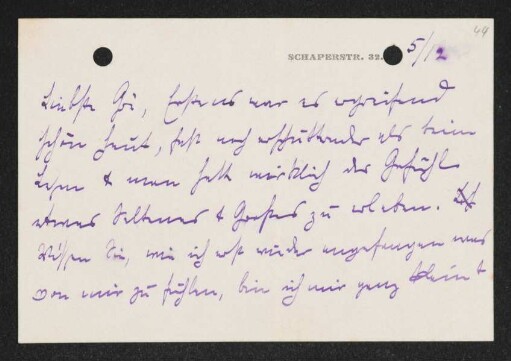 49
SCHAPERSTR. 32. 5/12
Liebste Gö, Erstens war es ergreifend
schön heut, fast noch erschütternder als beim
Lesen & man hatte wirklich das Gefühl
etwas Seltenes & Großes zu erleben.
Wissen Sie, wie ich erst wieder angefangen was
von mir zu fühlen, bin ich mir ganz klein &